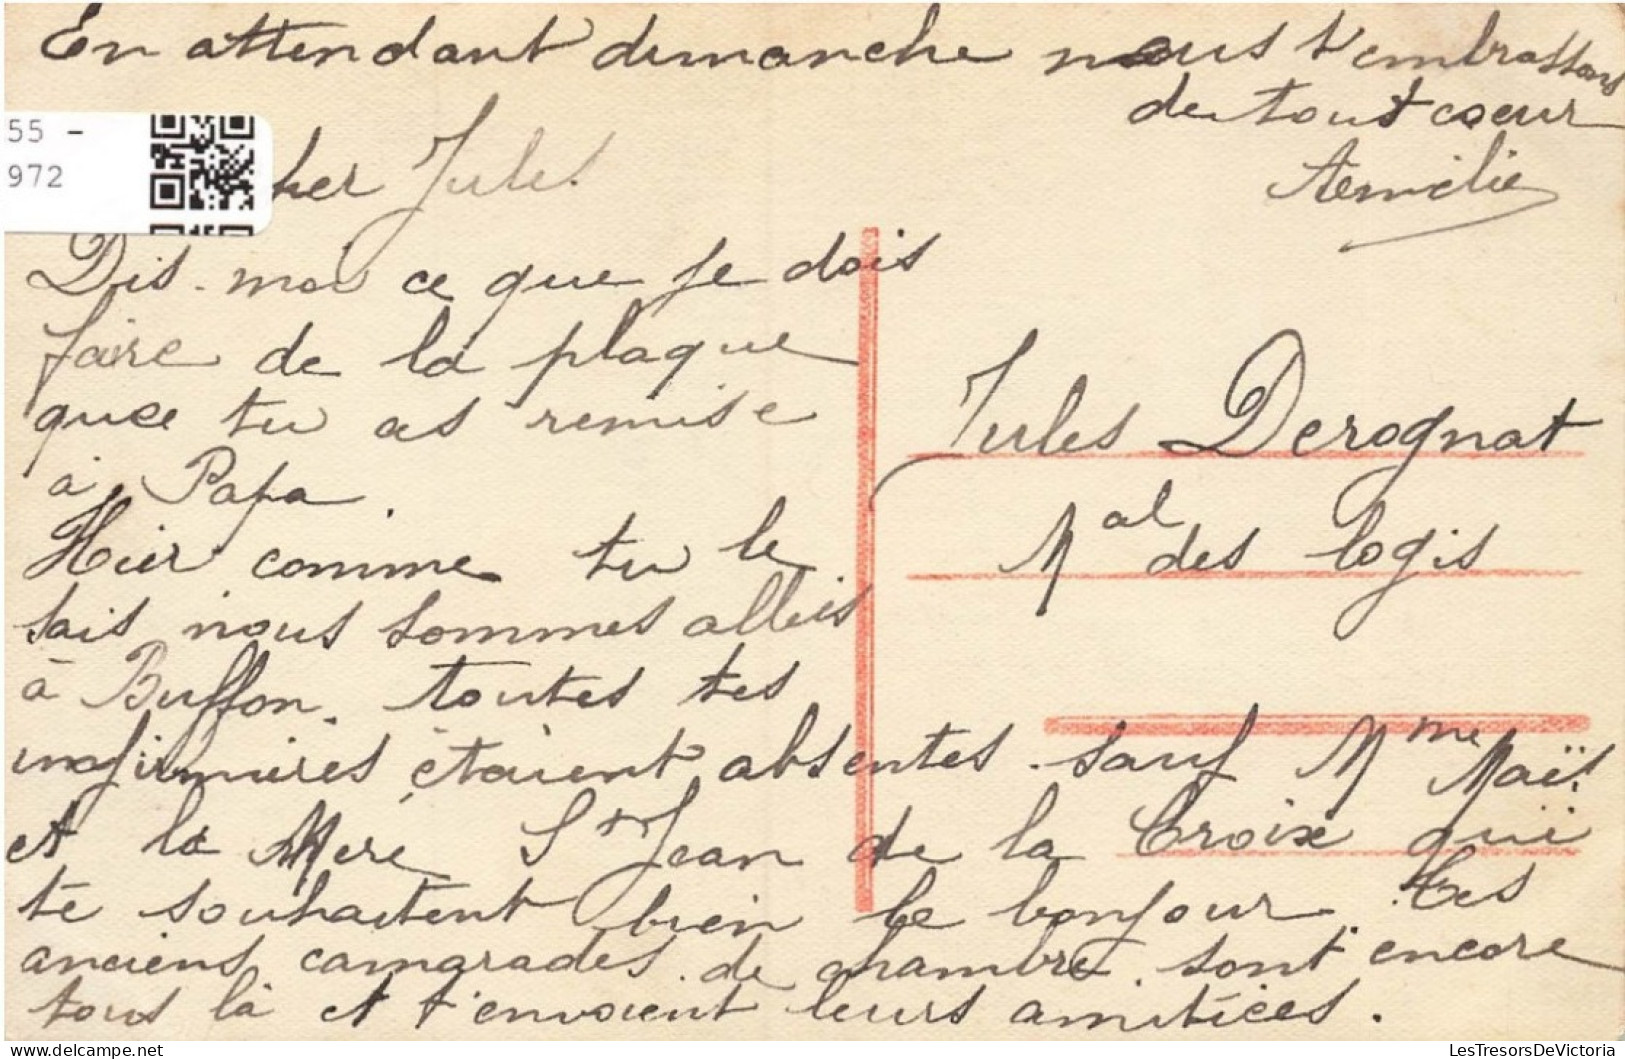 En attendant dimanche nous t'embrassons
de tout coeur
Aemélie
55 -
972
cher Jules.
Dis-moi ce que je dois
faire de la plaque
que tu as remise
à Papa.
Hier comme tu le
sais nous sommes allés
à Buffon. toutes tes
infirmières étaient absentes. sauf Mme Maïs.
et la Mère St Jean de la Croix qui
te souhaitent bien le bonjour. tes
anciens camarades de chambre sont encore
tous là et t'envoient leurs amitiées.
Jules Derognat
Mal des logis
LesTresorsDeVictoria